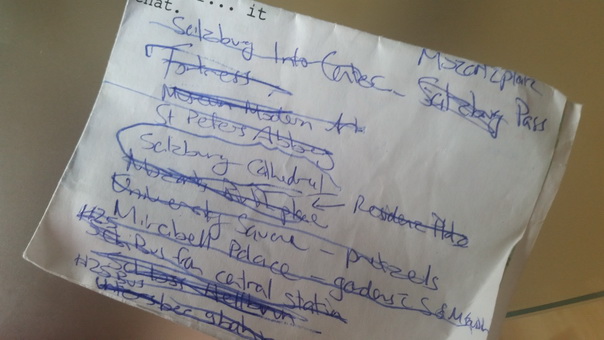 that. ... it
Salzburg Info Center - Mozartplatz
Fortress Salzburg Pass
Museum Modern Art
St Peters Abbey
Salzburg Cathedral
Mozarts Birthplace ← Residenz Platz
University Square - pretzels
Mirabell Palace - gardens
H25 Bus from central station
Schloss Hellbrunn
H25 Bus
Untersbergbahn